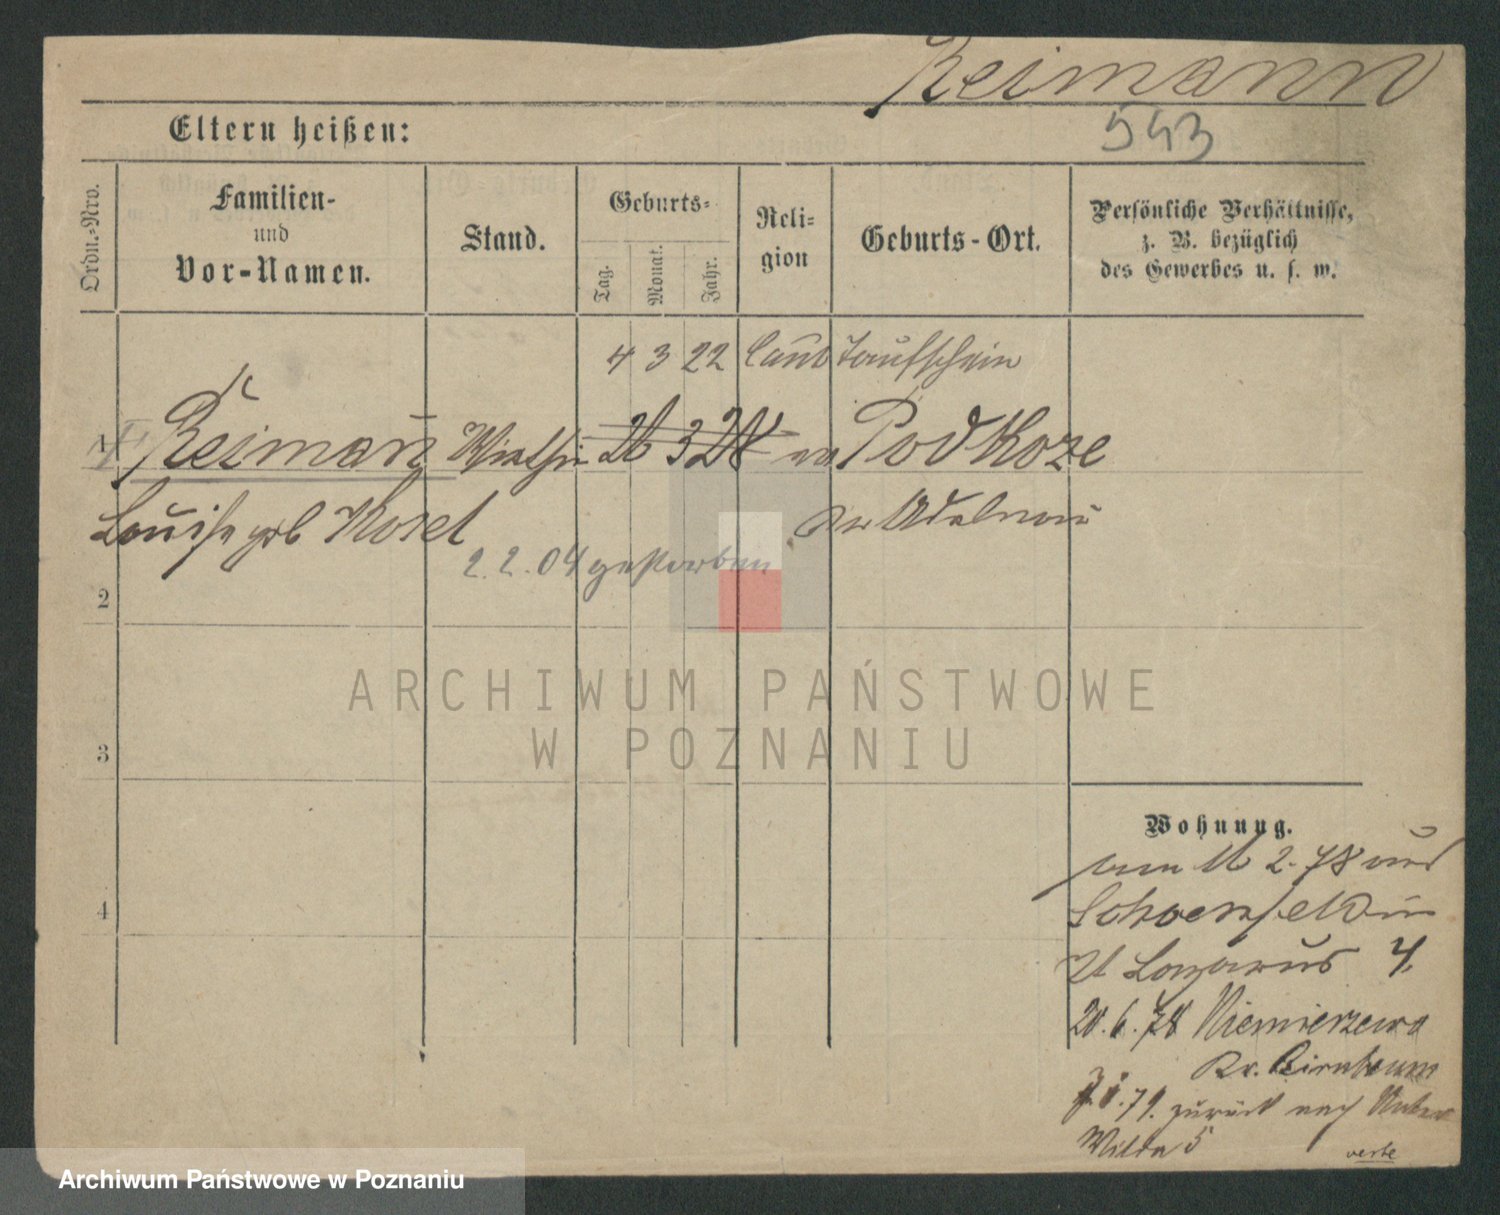 Reimann
543
Eltern heißen:
Ordn.-Nro.
Familien-
und
Vor-Namen.
Stand.
Geburts-
Tag.
Monat.
Jahr.
Reli-
gion
Geburts-Ort.
Persönliche Verhältnisse,
z. B. bezüglich
des Gewerbes u. s. w.
4 3 22 laut Taufschein
1 Reimann Wirthin 26 3 28 ev Podkoze
Louise geb Kosel Kr Adelnau
2.2.04 gestorben
2
ARCHIWUM PAŃSTWOWE
W POZNANIU
3
4
Wohnung.
2. 78 aus
Schoenfeld in
St Lazarus 4.
20. 6. 78 Niemierzewo
Kr. Birnbaum
79. zurück nach Unter
Wilda 5
verte
Archiwum Państwowe w Poznaniu